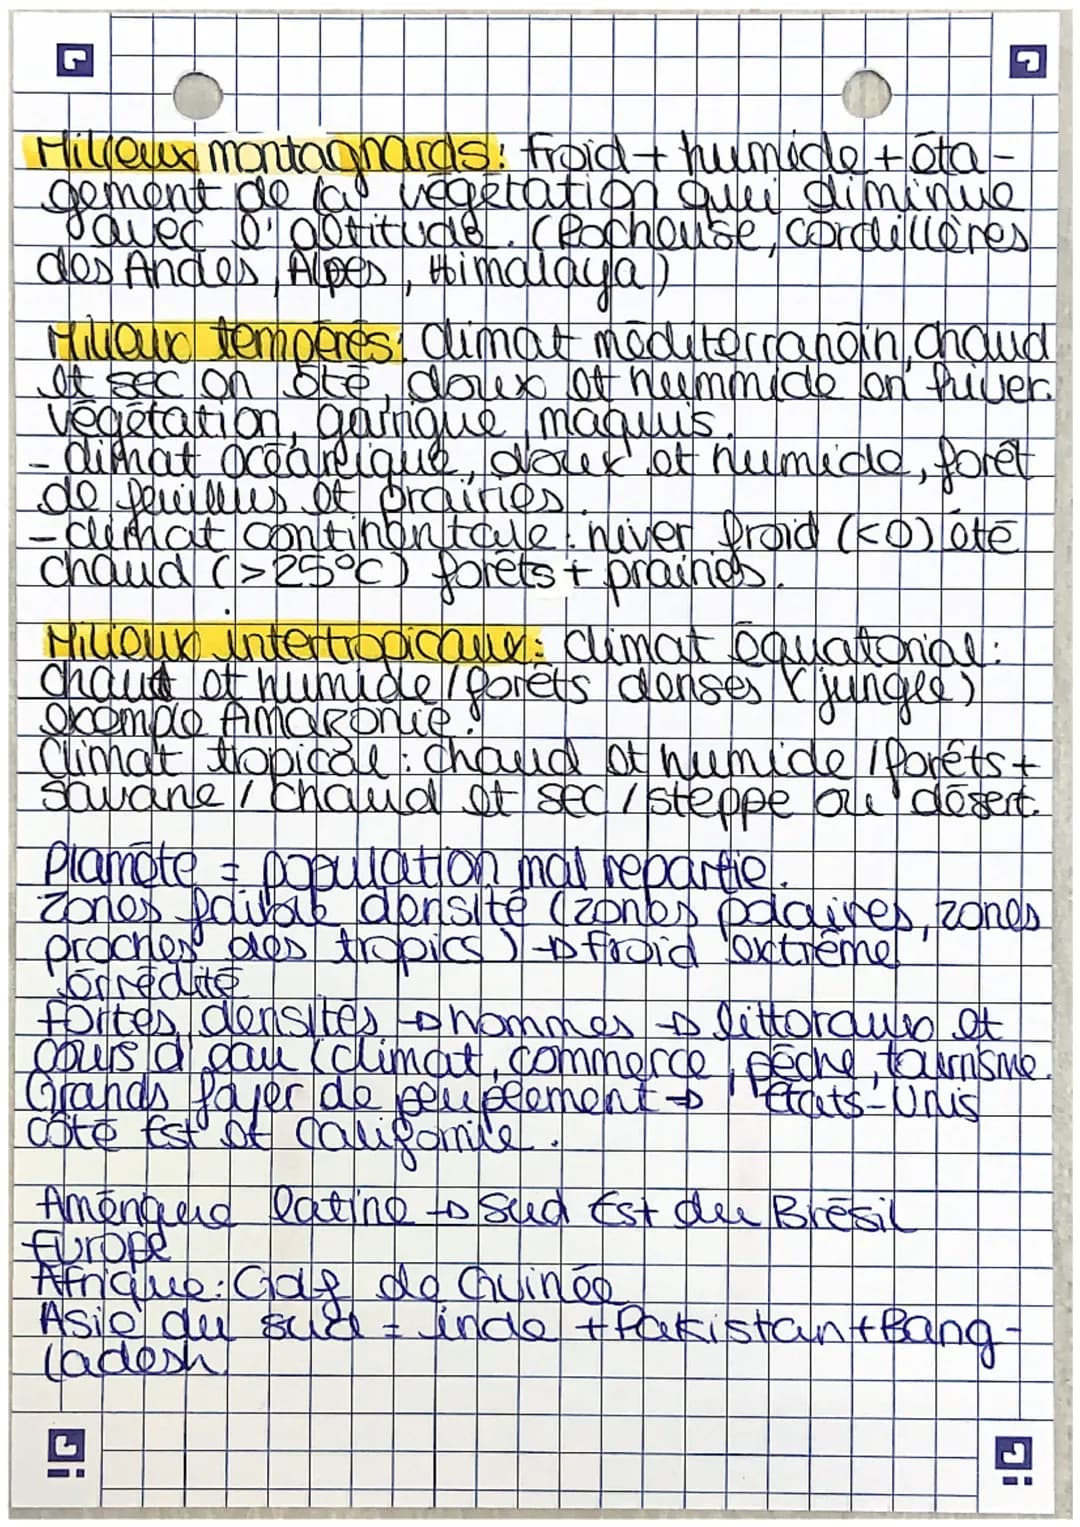 Milieux montagnards: froid + humide + éta-
gement de la végétation qui diminue
avec l'altitude. (Rocheuse, cordillères
des Andes, Alpes, Himalaya)
Milieux tempérés: climat méditerranéin, chaud
et sec en été, doux et hummide en hiver.
végétation, garrigue, maquis.
- climat océanique, doux et humide, forêt
de feuillus et prairies.
- climat continentale: hiver froid (<0) été
chaud (>25°C) forêts + prairies.
Milieux intertropicaux: climat équatorial:
chaud et humide / forêts denses (jungle)
exemple Amazonie.
Climat tropical: chaud et humide / forêts +
savane / chaud et sec / steppe ou désert.
Planète = population mal repartie.
Zones faible densité (zones polaires, zones
proches des tropics) → froid extrême
fortes densités → hommes → littoraux et
cours d'eau (climat, commerce, pêche, tourisme.
Grands foyer de peuplement → États-Unis
côte Est et Californie.
Amérique latine → Sud Est du Brésil
Europe
Afrique: Golf de Guinée
Asie du sud = inde + Pakistan + Bang-
ladesh